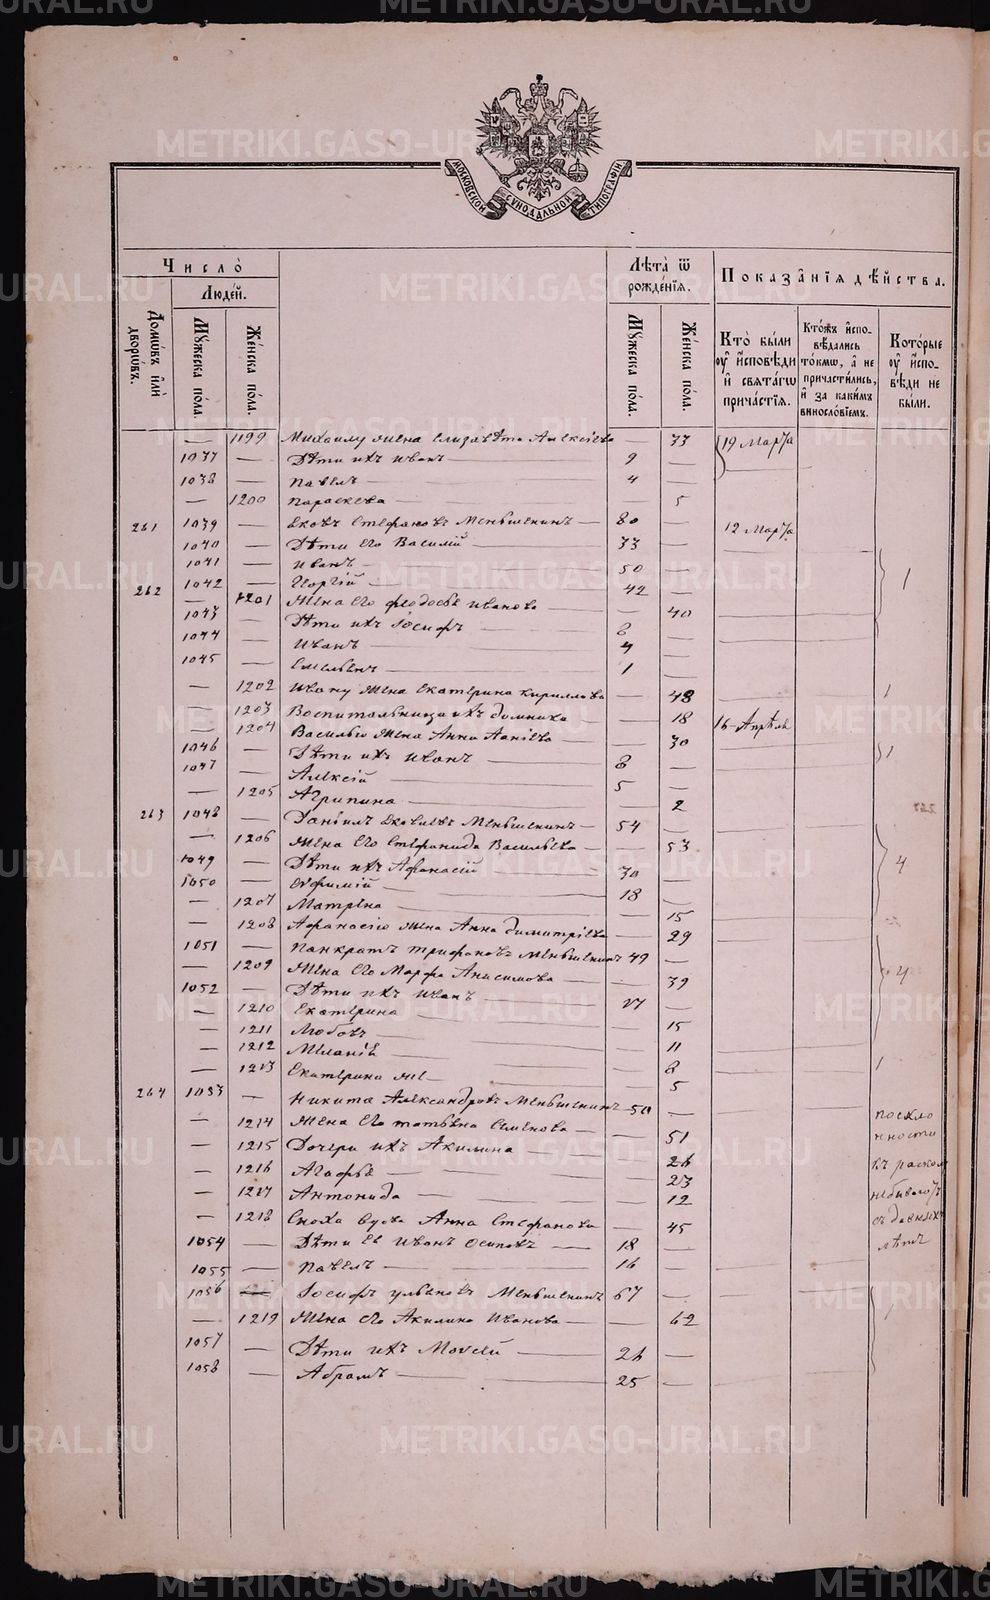 МОСКОВСКОЙ СѴНОДАЛЬНОЙ ТИПОГРАФІИ
Число̀
Людей.
Домѡвъ илѝ дворѡвъ.
Мꙋжеска пола.
Женска пола.
Лѣта̀ ѿ рожденїѧ.
Мꙋжеска пола.
Женска пола.
Показанїѧ дѣйства.
Кто̀ были ᲂу̓ исповѣди и свѧтагѡ причастїѧ.
Ктожъ исповѣдались токмѡ, а не причастились, и за какимъ винословїемъ.
Которые ᲂу̓ исповѣди не были.
— 1199 Михаилу жена Елизавета Алексіева — 33 19 Марта
1037 — Дѣти ихъ Иванъ — 9 —
1038 — Павелъ — 4 —
— 1200 Параскева — 5
261 1039 — Яковъ Стефановъ Меньшенинъ — 80 — 12 Марта
1040 — Дѣти его Василій — 33 —
1041 — Иванъ — 50 —
262 1042 — Георгій — 42 — 1
— 1201 Жена его Феодосья Иванова — 40
1043 — Дѣти ихъ Іосифъ — 8 —
1044 — Иванъ — 4 —
1045 — Емельянъ — 1 —
— 1202 Ивану жена Екатерина Кириллова — 48 1
— 1203 Воспитальница ихъ Домника — 18 16 Апрѣля
— 1204 Василью жена Анна — 30
1046 — Дѣти ихъ Иванъ — 8 — 1
1047 — Алексій — 5 —
— 1205 Агрипина — 2
263 1048 — Даніилъ Яковлевъ Меньшенинъ — 54 —
— 1206 Жена его Стефанида Васильева — 53
1049 — Дѣти ихъ Афанасій — 30 — 4
1050 — Ефимій — 18 —
— 1207 Матрена — 15
— 1208 Афанасію жена Анна Димитріева — 29
1051 — Панкратъ Трифоновъ Меньшенинъ 49 —
— 1209 Жена его Марфа Анисимова — 39 4
1052 — Дѣти ихъ Иванъ — 17 —
— 1210 Екатерина — 15
— 1211 Любовь — 11
— 1212 Меланія — 8
— 1213 Екатерина же — 5 1
264 1053 — Никита Александровъ Меньшенинъ 50 — по скло
— 1214 Жена его Татьяна Семенова — 51 нности
— 1215 Дочери ихъ Акилина — 26 къ раскол
— 1216 Агафья — 23
— 1217 Антонида — 12 не бываютъ
— 1218 Сноха вдова Анна Стефанова — 45 съ давнихъ
1054 — Дѣти ея Иванъ Осиповъ — 18 — лѣтъ
1055 — Павелъ — 16 —
1056 — Іосифъ Ульяновъ Меньшенинъ 67 —
— 1219 Жена его Акилина Иванова — 62
1057 — Дѣти ихъ Моисей — 26 —
1058 — Абрамъ — 25 —
METRIKI.GASO-URAL.RU